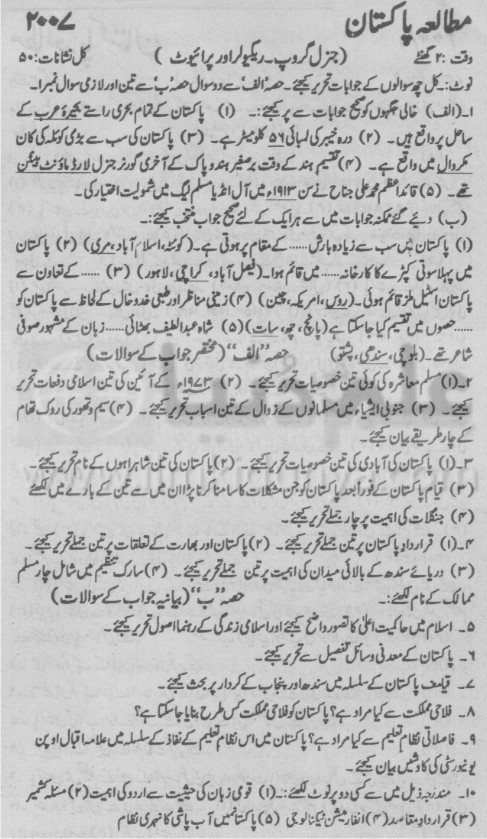 مطالعہ پاکستان ۲۰۰۷
وقت : ۲ گھنٹے (جنرل گروپ - ریگولر اور پرائیوٹ) کل نشانات : ۵۰
نوٹ:۔ کل چھ سوالوں کے جوابات تحریر کیجئے۔ حصہ "الف" سے دو سوال حصہ "ب" سے تین اور لازمی سوال نمبر ۱۔
۱۔ (الف) خالی جگہوں کو صحیح جوابات سے پر کیجئے:۔ (۱) پاکستان کے تمام بحری راستے بحیرۂ عرب کے
ساحل پر واقع ہیں۔ (۲) درہ خیبر کی لمبائی ۵۶ کلومیٹر ہے۔ (۳) پاکستان کی سب سے بڑی کوئلہ کی کان
مکروال میں واقع ہے۔ (۴) تقسیم ہند کے وقت برصغیر ہند و پاک کے آخری گورنر جنرل لارڈ ماؤنٹ بیٹن
تھے۔ (۵) قائد اعظم محمد علی جناح نے سن ۱۹۱۳ء میں آل انڈیا مسلم لیگ میں شمولیت اختیار کی۔
(ب) دیئے گئے ممکنہ جوابات میں سے ہر ایک کے لئے صحیح جواب منتخب کیجئے:۔
(۱) پاکستان میں سب سے زیادہ بارش ...... کے مقام پر ہوتی ہے۔ (کوئٹہ، اسلام آباد، مری) (۲) پاکستان
میں پہلا سوتی کپڑے کا کارخانہ ...... میں قائم ہوا۔ (فیصل آباد، کراچی، لاہور) (۳) ...... کے تعاون سے
پاکستان اسٹیل ملز قائم ہوئی۔ (روس، امریکہ، چین) (۴) زمینی مناظر اور طبعی خدوخال کے لحاظ سے پاکستان کو
...... حصوں میں تقسیم کیا جا سکتا ہے (پانچ، چھ، سات) (۵) شاہ عبداللطیف بھٹائی ...... زبان کے مشہور صوفی
شاعر تھے۔ (بلوچی، سندھی، پشتو) حصہ "الف" (مختصر جواب کے سوالات)
۲۔ (۱) مسلم معاشرہ کی کوئی تین خصوصیات تحریر کیجئے۔ (۲) ۱۹۷۳ء کے آئین کی تین اسلامی دفعات تحریر
کیجئے۔ (۳) جنوبی ایشیاء میں مسلمانوں کے زوال کے تین اسباب تحریر کیجئے۔ (۴) سیم و تھور کی روک تھام
کے چار طریقے بیان کیجئے۔
۳۔ (۱) پاکستان کی آبادی کی تین خصوصیات تحریر کیجئے۔ (۲) پاکستان کی تین شاہراہوں کے نام تحریر کیجئے۔
(۳) قیام پاکستان کے فوراً بعد پاکستان کو جن مشکلات کا سامنا کرنا پڑا ان میں سے تین کے بارے میں لکھئے
(۴) جنگلات کی اہمیت پر چار جملے تحریر کیجئے۔
۴۔ (۱) قرارداد پاکستان پر تین جملے تحریر کیجئے۔ (۲) پاکستان اور بھارت کے تعلقات پر تین جملے تحریر کیجئے۔
(۳) دریائے سندھ کے بالائی میدان کی اہمیت پر تین جملے تحریر کیجئے۔ (۴) سارک تنظیم میں شامل چار مسلم
ممالک کے نام لکھئے:۔ حصہ "ب" (بیانیہ جواب کے سوالات)
۵۔ اسلام میں حاکمیت اعلیٰ کا تصور واضح کیجئے اور اسلامی زندگی کے رہنما اصول تحریر کیجئے۔
۶۔ پاکستان کے معدنی وسائل تفصیل سے تحریر کیجئے۔
۷۔ قیام پاکستان کے سلسلہ میں سندھ اور پنجاب کے کردار پر بحث کیجئے۔
۸۔ فلاحی مملکت سے کیا مراد ہے؟ پاکستان کو فلاحی مملکت کس طرح بنایا جا سکتا ہے؟
۹۔ فاصلاتی نظام تعلیم سے کیا مراد ہے؟ پاکستان میں اس نظام تعلیم کے نفاذ کے سلسلہ میں علامہ اقبال اوپن
یونیورسٹی کی کاوشیں بیان کیجئے۔
۱۰۔ مندرجہ ذیل میں سے کسی دو پر نوٹ لکھئے:۔ (۱) قومی زبان کی حیثیت سے اردو کی اہمیت (۲) مسئلہ کشمیر
(۳) قرارداد مقاصد (۴) انفارمیشن ٹیکنالوجی (۵) پاکستان میں آب پاشی کا نہری نظام